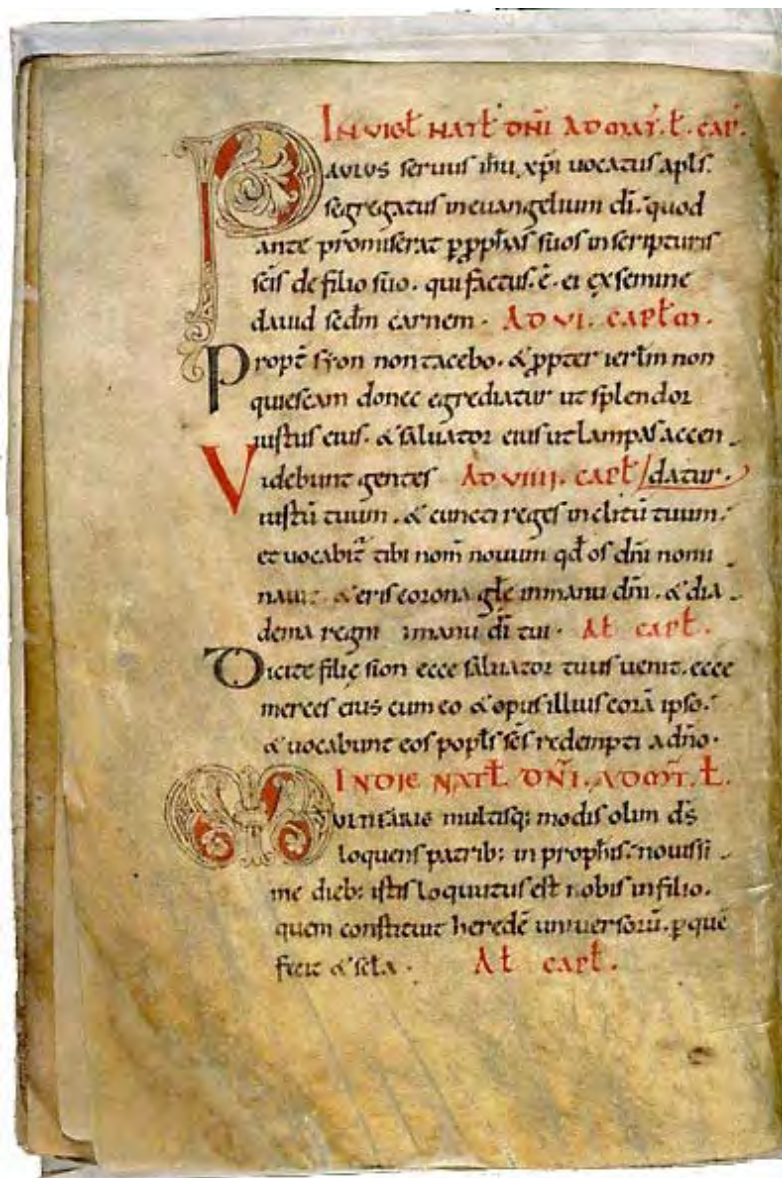 IN VIGL NATL DNI AD MAT. L. CAP.
PAULUS servus ihu xpi vocatus apls.
segregatus in evangelium di. quod
ante promiserat p pphas suos in scripturis
scis de filio suo. qui factus. e. ei ex semine
david sedm carnem. AD VI. CAPLM.
Propt syon non tacebo. & ppter ierlm non
quiescam donec egrediatur ut splendor
iustus eius. & salvator eius ut lampas accen
Videbunt gentes AD VIIII. CAPL / datur.
iustu tuum. & cuncti reges inclitu tuum.
et vocabit tibi nom novum qd os dni nomi
navit. & eris corona gle in manu dni. & dia
dema regni imanu di tui. AL CAPL.
Dicite filie sion ecce salvator tuus venit. ecce
merces eius cum eo & opus illius cora ipso.
& vocabunt eos popls scs redempti a dno.
IN DIE NATL DNI. AD MT. L.
MULTIFARIE multisq; modis olim ds
loquens patrib; in prophis. novissi
me dieb; istis loquutus est nobis in filio.
quem constituit herede universoru. p que
fecit & scla. AL CAPL.